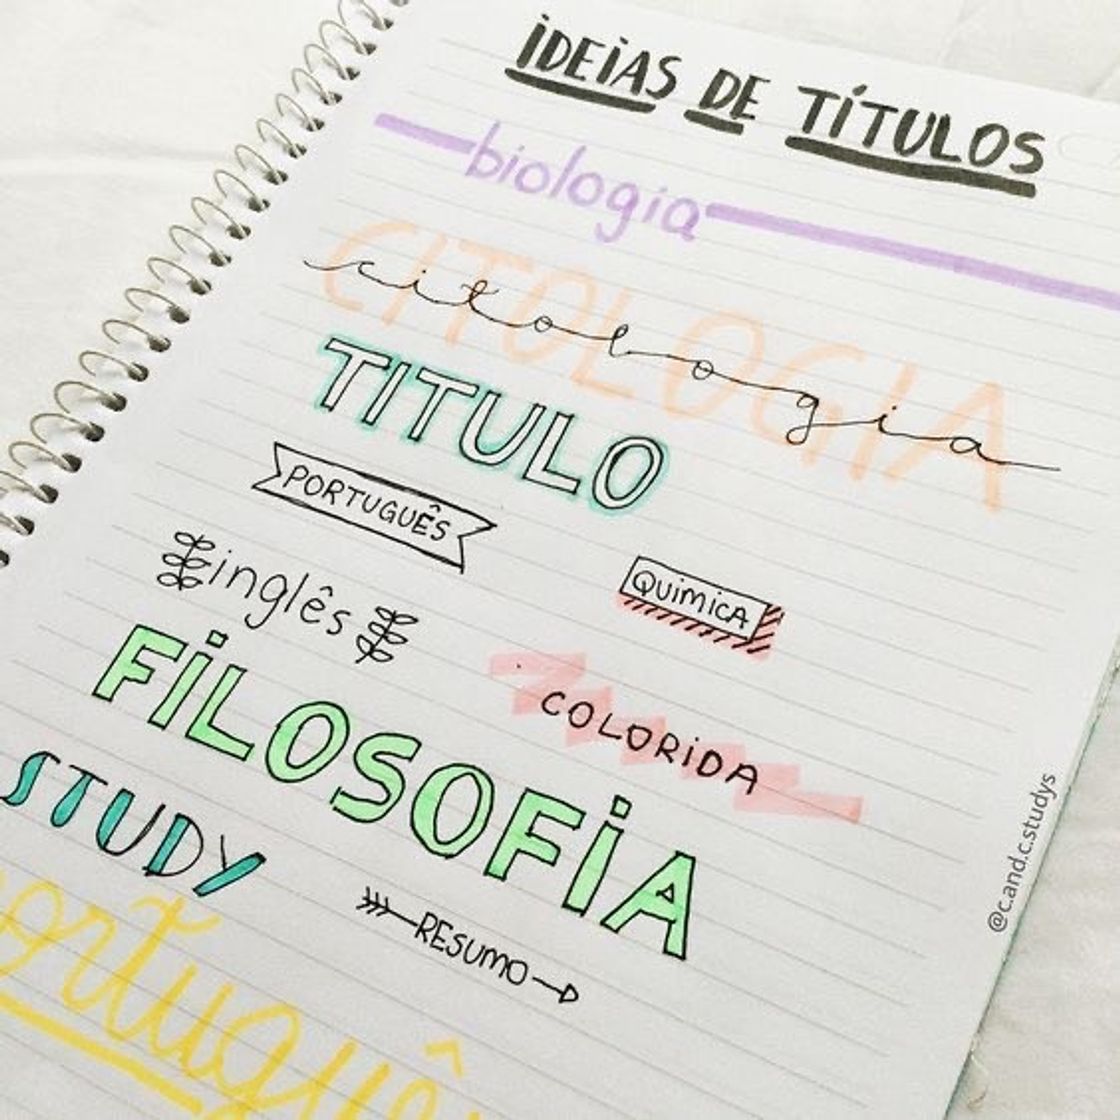 IDEIAS DE TÍTULOS
biologia
CITOLOGIA
citologia
TITULO
PORTUGUÊS
QUIMICA
inglês
COLORIDA
FILOSOFIA
STUDY
RESUMO
ortuguê
@c.and.c.studys